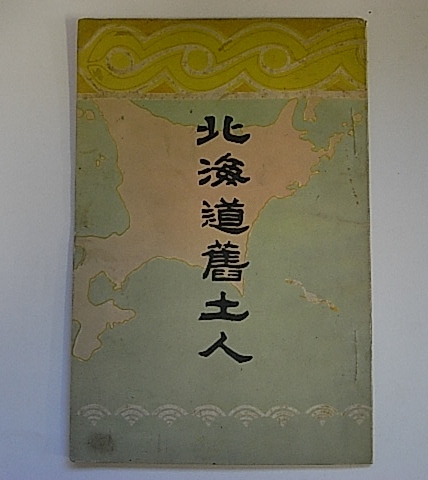 北海道舊土人